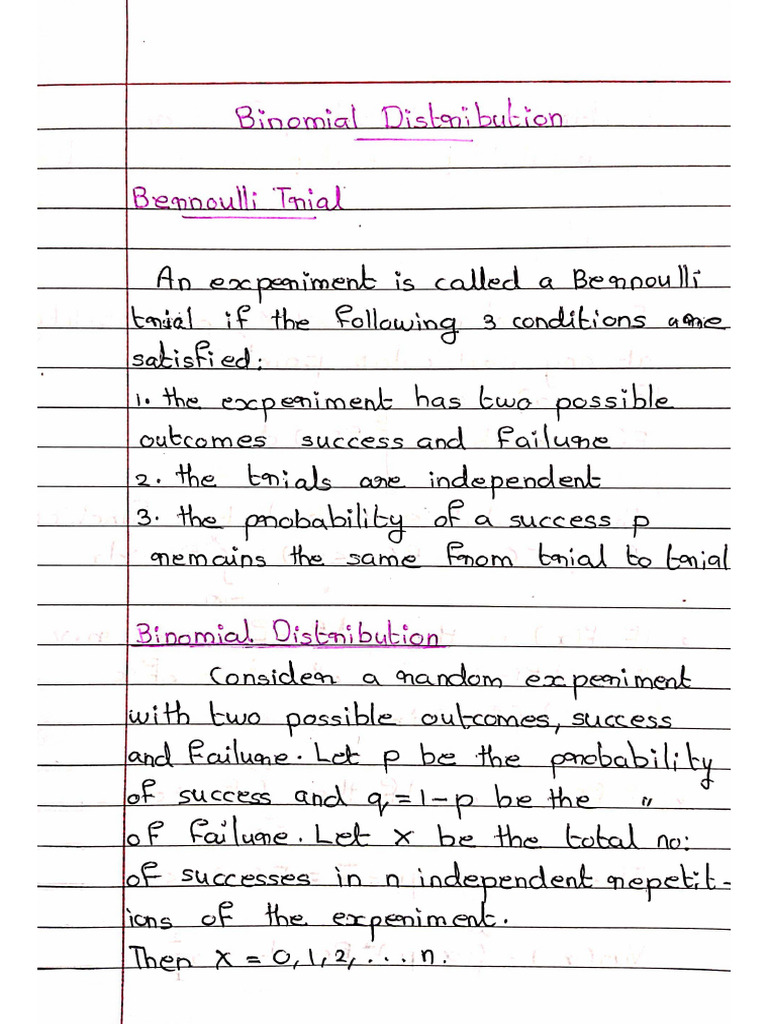 Binomial Distribution
Bernoulli Trial
An experiment is called a Bernoulli
trial if the following 3 conditions are
satisfied:
1. the experiment has two possible
outcomes success and failure
2. the trials are independent
3. the probability of a success p
remains the same from trial to trial
Binomial Distribution
Consider a random experiment
with two possible outcomes, success
and failure. Let p be the probability
of success and q = 1 - p be the "
of failure. Let x be the total no:
of successes in n independent repetit-
ions of the experiment.
Then x = 0, 1, 2, ... n.